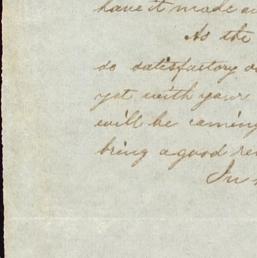 have it made
As the
so satisfactory
yet with your
will be coming
bring a good
In